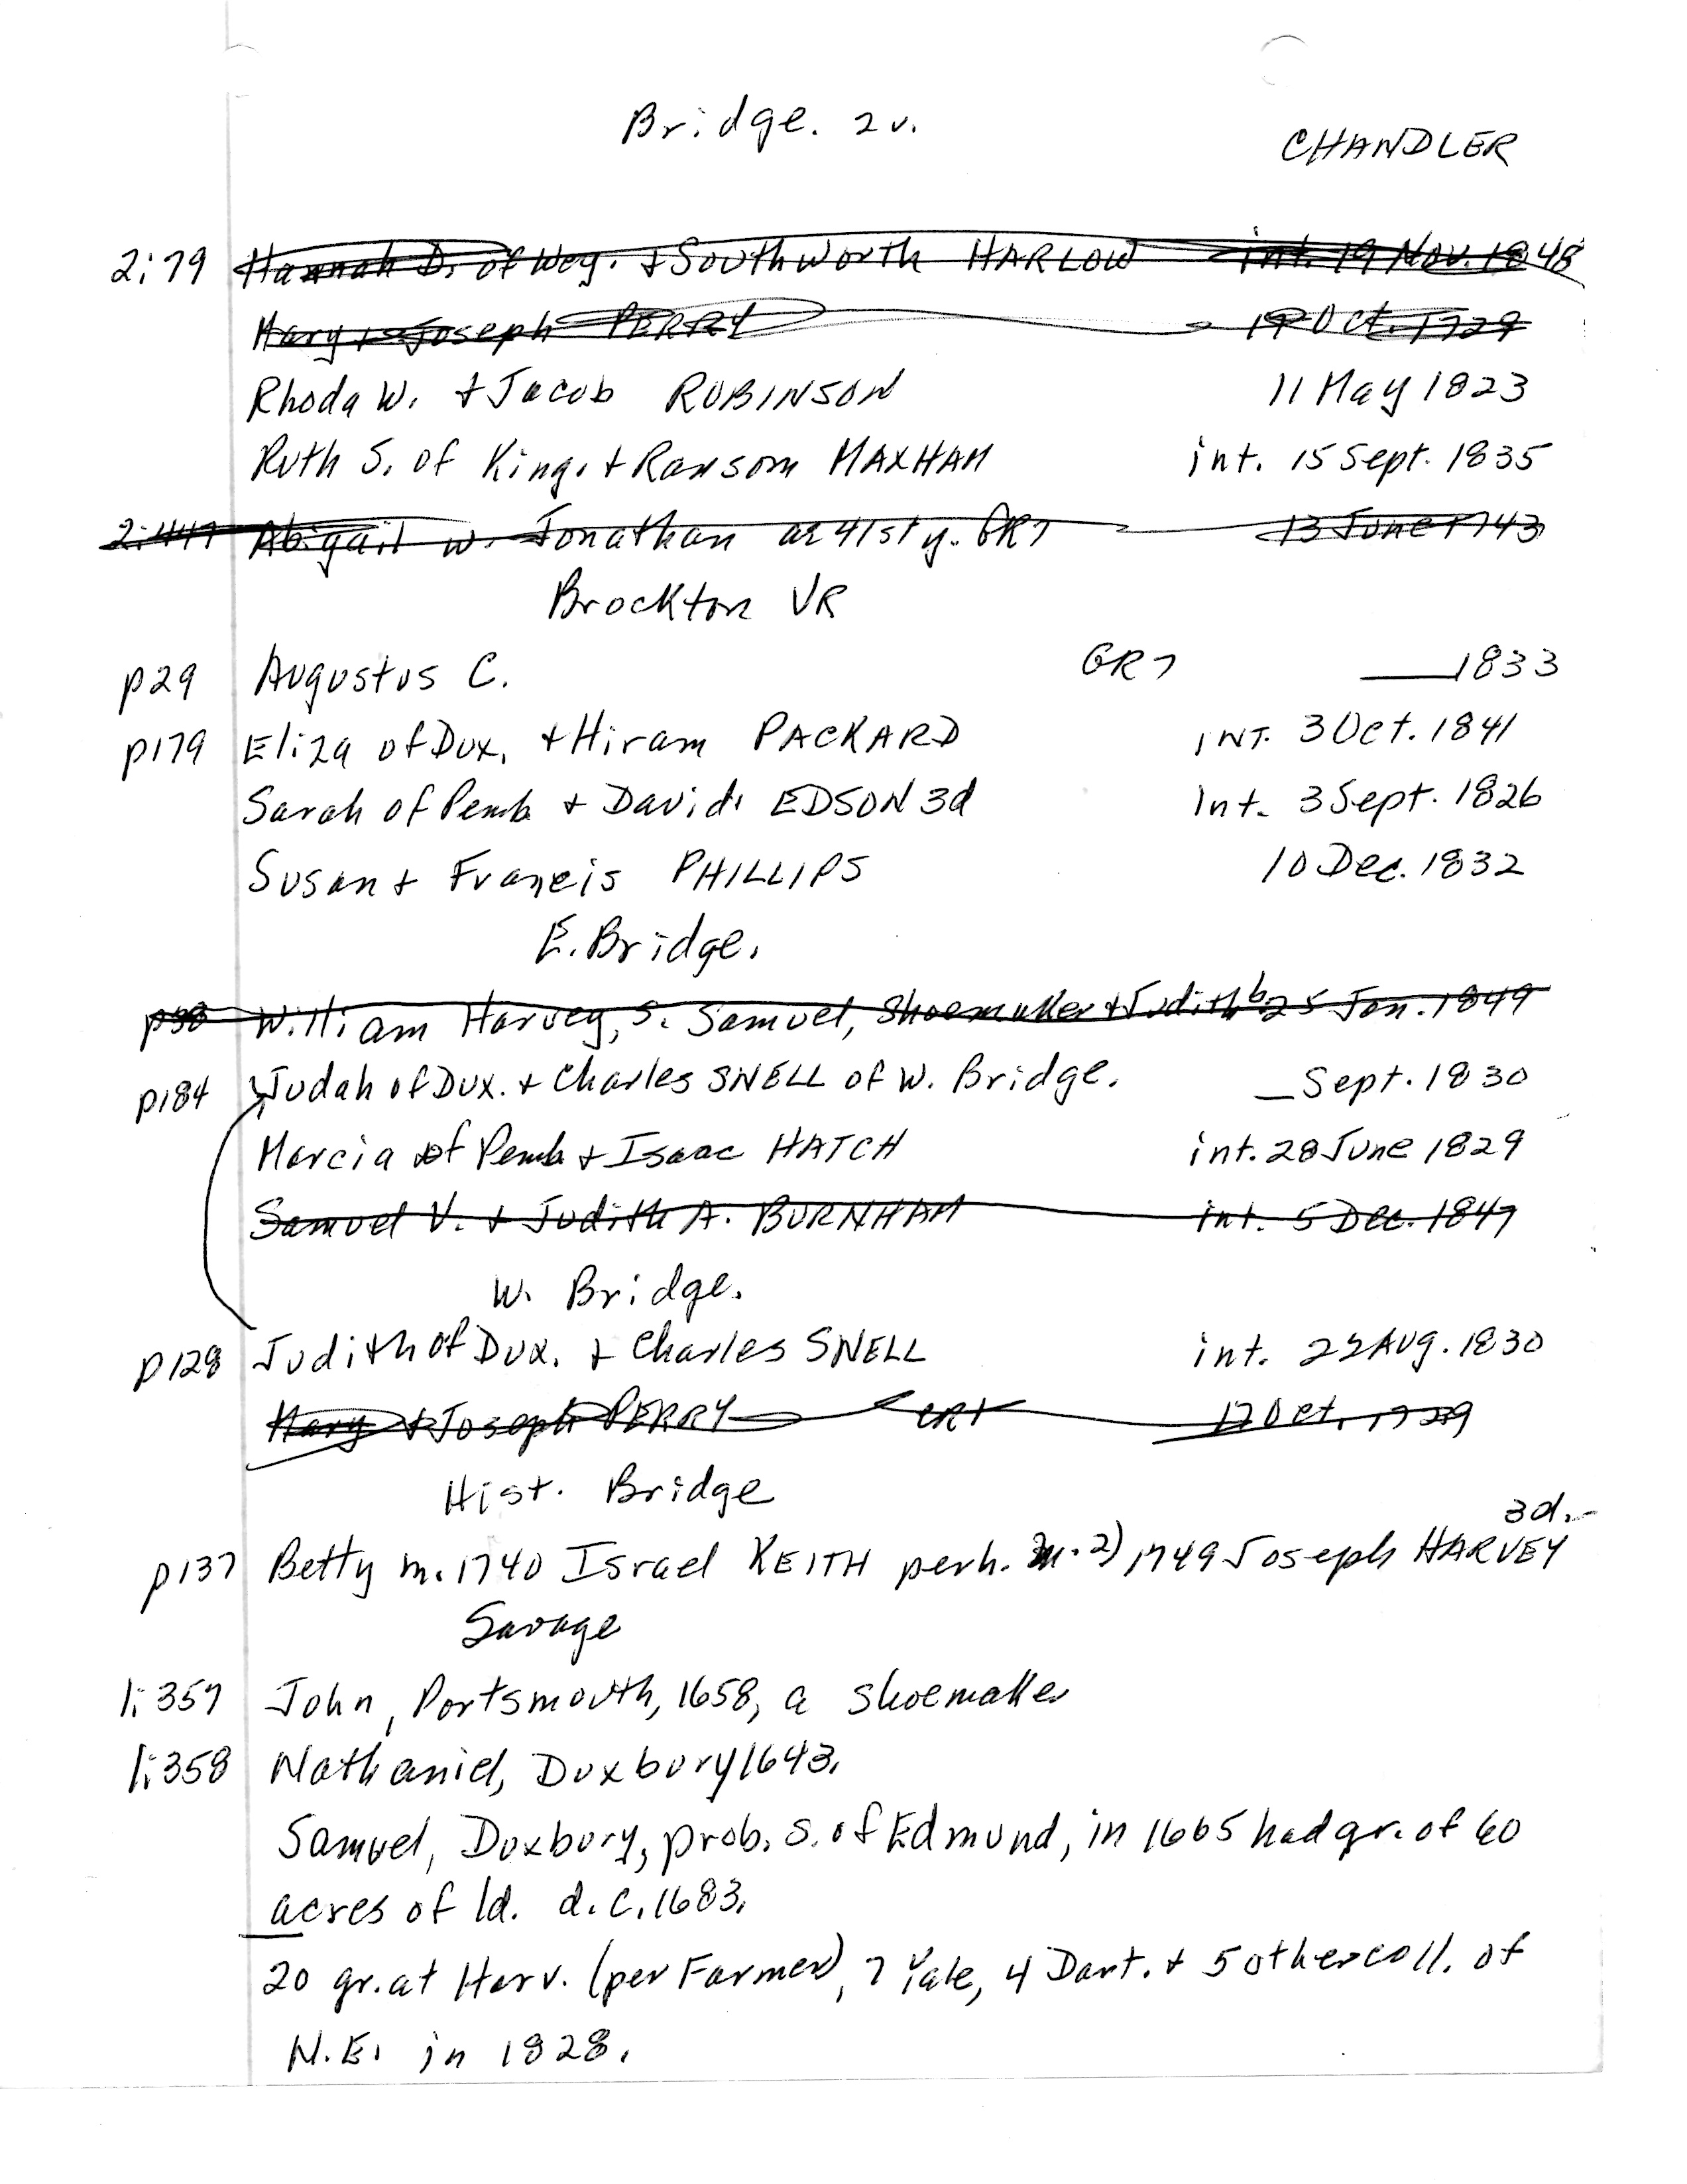 Bridge. 2v.
CHANDLER
2:79 Hannah D. of Wey. + Southworth HARLOW int. 19 Nov. 1848
Mary + Joseph PERRY 17 Oct. 1729
Rhoda W. + Jacob ROBINSON 11 May 1823
Ruth S. of King. + Ransom MAXHAM int. 15 Sept. 1835
2:447 Abigail w. Jonathan ae 41st y. GR7 13 June 1743
Brockton VR
p29 Augustus C. GR7 __1833
p179 Eliza of Dux. + Hiram PACKARD INT. 3 Oct. 1841
Sarah of Pemb + David EDSON 3d Int. 3 Sept. 1826
Susan + Francis PHILLIPS 10 Dec. 1832
E. Bridge.
p38 William Harvey, S. Samuel, Shoemaker + Judith b 25 Jan. 1849
p184 Judah of Dux. + Charles SNELL of W. Bridge. _Sept. 1830
Marcia of Pemb + Isaac HATCH int. 28 June 1829
Samuel V. + Judith A. BURNHAM int. 5 Dec. 1847
W. Bridge.
p128 Judith of Dux. + Charles SNELL int. 22 Aug. 1830
Mary + Joseph PERRY CR1 17 Oct. 1729
Hist. Bridge
3d.
p137 Betty m. 1740 Israel KEITH perh. m. 2) 1749 Joseph HARVEY
Savage
1:357 John, Portsmouth, 1658, a shoemaker
1:358 Nathaniel, Duxbury 1643.
Samuel, Duxbury, prob. S. of Edmund, in 1665 had gr. of 60
acres of ld. d. c. 1683.
20 gr. at Harv. (per Farmer), 7 Yale, 4 Dart. + 5 other coll. of
N.E. in 1828.